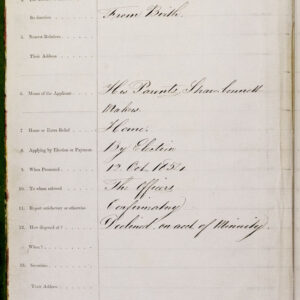 Its duration
From Birth.
5. Nearest Relatives
Their Address
6. Means of the Applicant
His Parents, Straw bonnet
Makers
7. Home or Union Relief
Home.
8. Applying by Election or Payment
By Election
9. When Presented
12 Oct. 1854
10. To whom referred
The Officers
11. Report satisfactory or otherwise
Confirmatory
12. How disposed of?
Declined on acct of Minority.
When?
13. Securities
Their Address